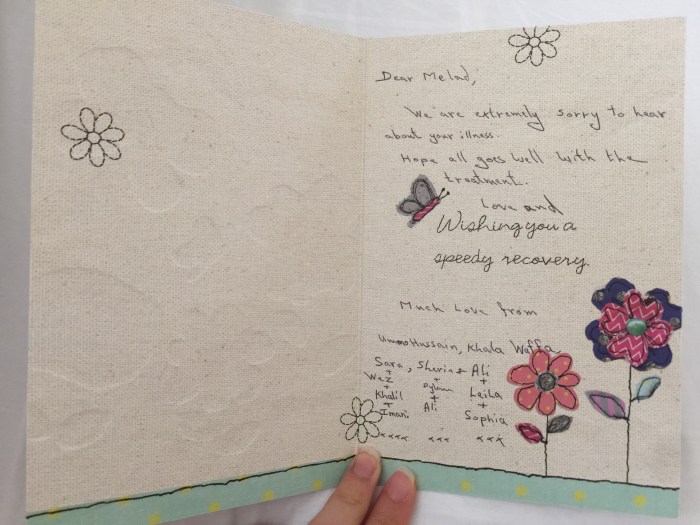 Dear Melad,
We are extremely sorry to hear
about your illness.
Hope all goes well with the
treatment.
Love and
Wishing you a
speedy recovery
Much Love from
Ummo Hussain, Khala Waffa
Sara, Sherin + Ali
+ + +
Waz Leila
+ + +
Khalil Ali Sophia
+
Imani
xxxx xxx xxx